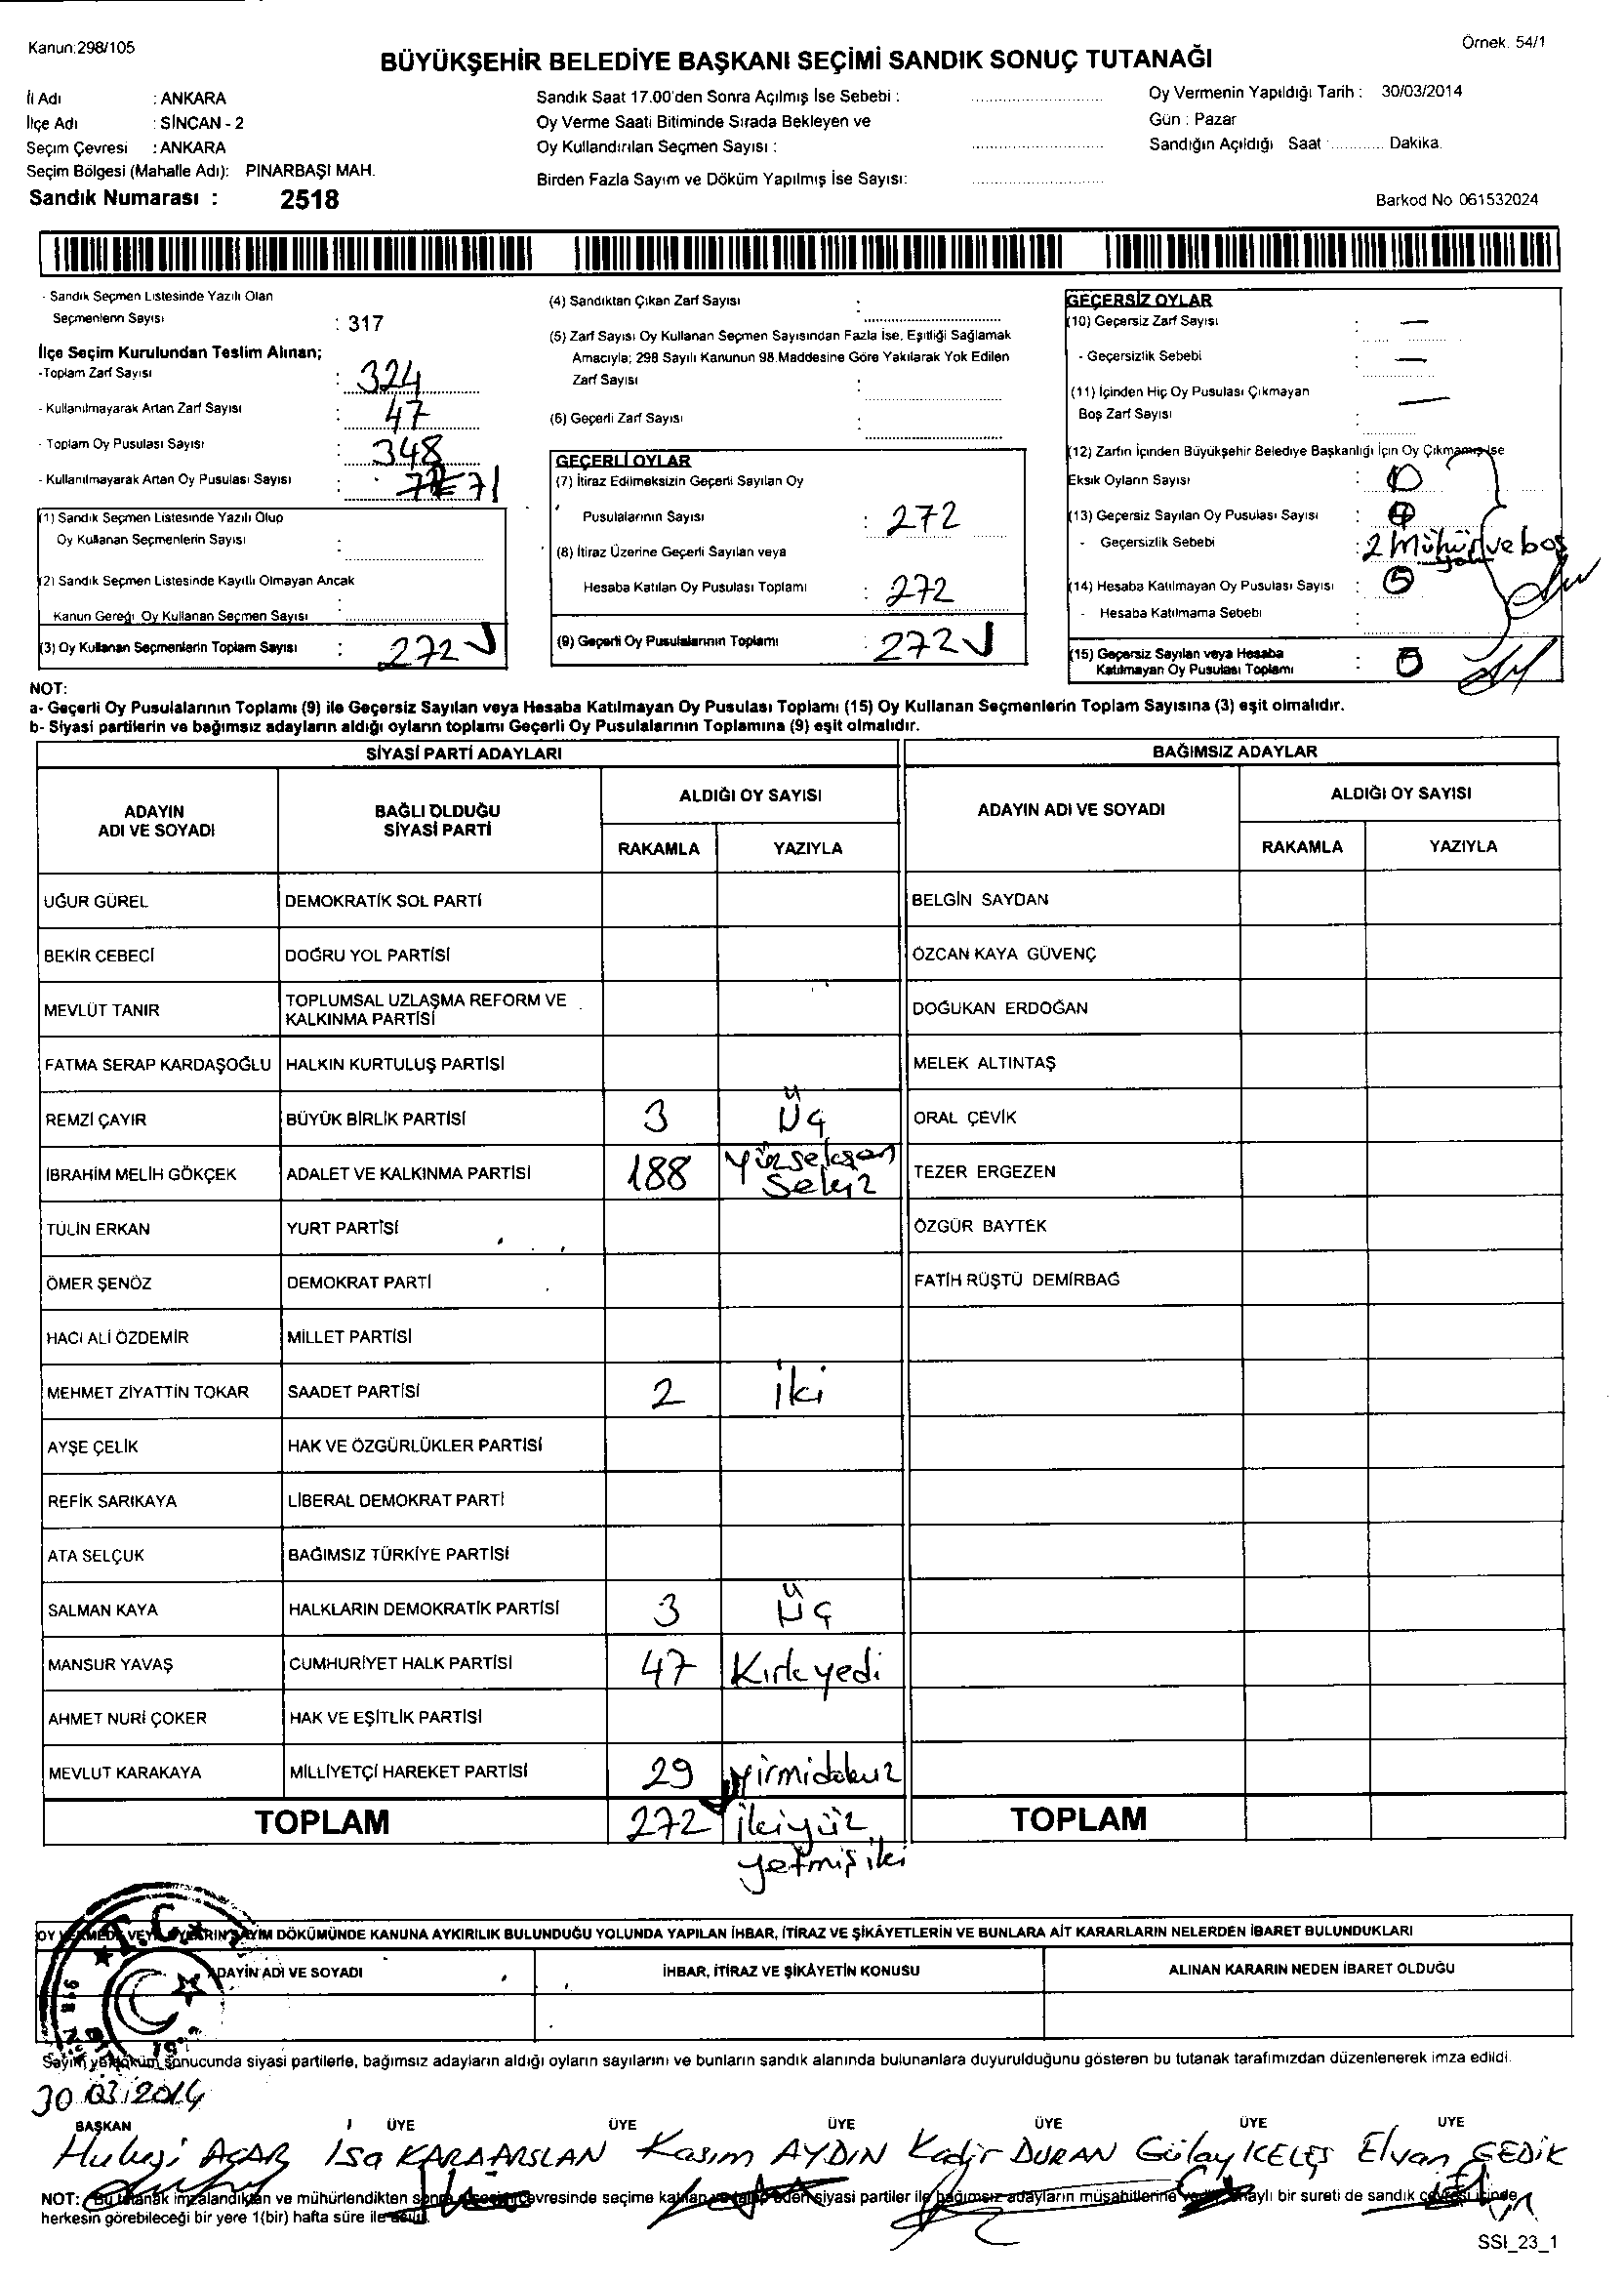 Kanun:298/105
Örnek. 54/1
BÜYÜKŞEHİR BELEDİYE BAŞKANI SEÇİMİ SANDIK SONUÇ TUTANAĞI
İl Adı : ANKARA
İlçe Adı : SİNCAN - 2
Seçim Çevresi : ANKARA
Seçim Bölgesi (Mahalle Adı): PINARBAŞI MAH.
Sandık Numarası : 2518
Sandık Saat 17.00'den Sonra Açılmış İse Sebebi :
Oy Verme Saati Bitiminde Sırada Bekleyen ve
Oy Kullandırılan Seçmen Sayısı :
Birden Fazla Sayım ve Döküm Yapılmış İse Sayısı:
Oy Vermenin Yapıldığı Tarih : 30/03/2014
Gün : Pazar
Sandığın Açıldığı Saat : ............ Dakika.
Barkod No 061532024
- Sandık Seçmen Listesinde Yazılı Olan
Seçmenlerin Sayısı : 317
İlçe Seçim Kurulundan Teslim Alınan;
-Toplam Zarf Sayısı : 324
- Kullanılmayarak Artan Zarf Sayısı : 47
- Toplam Oy Pusulası Sayısı : 348
- Kullanılmayarak Artan Oy Pusulası Sayısı : 71
(1) Sandık Seçmen Listesinde Yazılı Olup
Oy Kullanan Seçmenlerin Sayısı :
(2) Sandık Seçmen Listesinde Kayıtlı Olmayan Ancak
Kanun Gereği Oy Kullanan Seçmen Sayısı :
(3) Oy Kullanan Seçmenlerin Toplam Sayısı : 272
(4) Sandıktan Çıkan Zarf Sayısı :
(5) Zarf Sayısı Oy Kullanan Seçmen Sayısından Fazla İse, Eşitliği Sağlamak
Amacıyla; 298 Sayılı Kanunun 98.Maddesine Göre Yakılarak Yok Edilen
Zarf Sayısı :
(6) Geçerli Zarf Sayısı :
GEÇERLİ OYLAR
(7) İtiraz Edilmeksizin Geçerli Sayılan Oy
Pusulalarının Sayısı : 272
(8) İtiraz Üzerine Geçerli Sayılan veya
Hesaba Katılan Oy Pusulası Toplamı : 272
(9) Geçerli Oy Pusulalarının Toplamı : 272
GEÇERSİZ OYLAR
(10) Geçersiz Zarf Sayısı : —
- Geçersizlik Sebebi : —
(11) İçinden Hiç Oy Pusulası Çıkmayan
Boş Zarf Sayısı : —
(12) Zarfın İçinden Büyükşehir Belediye Başkanlığı İçin Oy Çıkmamış İse
Eksik Oyların Sayısı :
(13) Geçersiz Sayılan Oy Pusulası Sayısı :
- Geçersizlik Sebebi : 2 Mühür ve boş
(14) Hesaba Katılmayan Oy Pusulası Sayısı : 5
- Hesaba Katılmama Sebebi :
(15) Geçersiz Sayılan veya Hesaba
Katılmayan Oy Pusulası Toplamı :
NOT:
a- Geçerli Oy Pusulalarının Toplamı (9) ile Geçersiz Sayılan veya Hesaba Katılmayan Oy Pusulası Toplamı (15) Oy Kullanan Seçmenlerin Toplam Sayısına (3) eşit olmalıdır.
b- Siyasi partilerin ve bağımsız adayların aldığı oyların toplamı Geçerli Oy Pusulalarının Toplamına (9) eşit olmalıdır.
SİYASİ PARTİ ADAYLARI
ADAYIN ADI VE SOYADI
BAĞLI OLDUĞU SİYASİ PARTİ
ALDIĞI OY SAYISI
RAKAMLA YAZIYLA
UĞUR GÜREL DEMOKRATİK SOL PARTİ
BEKİR CEBECİ DOĞRU YOL PARTİSİ
MEVLÜT TANIR TOPLUMSAL UZLAŞMA REFORM VE
KALKINMA PARTİSİ
FATMA SERAP KARDAŞOĞLU HALKIN KURTULUŞ PARTİSİ
REMZİ ÇAYIR BÜYÜK BİRLİK PARTİSİ 3 Üç
İBRAHİM MELİH GÖKÇEK ADALET VE KALKINMA PARTİSİ 188 Yüzseksen
Sekiz
TÜLİN ERKAN YURT PARTİSİ
ÖMER ŞENÖZ DEMOKRAT PARTİ
HACI ALİ ÖZDEMİR MİLLET PARTİSİ
MEHMET ZİYATTİN TOKAR SAADET PARTİSİ 2 iki
AYŞE ÇELİK HAK VE ÖZGÜRLÜKLER PARTİSİ
REFİK SARIKAYA LİBERAL DEMOKRAT PARTİ
ATA SELÇUK BAĞIMSIZ TÜRKİYE PARTİSİ
SALMAN KAYA HALKLARIN DEMOKRATİK PARTİSİ 3 Üç
MANSUR YAVAŞ CUMHURİYET HALK PARTİSİ 47 Kırkyedi
AHMET NURİ ÇOKER HAK VE EŞİTLİK PARTİSİ
MEVLUT KARAKAYA MİLLİYETÇİ HAREKET PARTİSİ 29 yirmidokuz
TOPLAM 272 ikiyüz
yetmiş iki
BAĞIMSIZ ADAYLAR
ADAYIN ADI VE SOYADI
ALDIĞI OY SAYISI
RAKAMLA YAZIYLA
BELGİN SAYDAN
ÖZCAN KAYA GÜVENÇ
DOĞUKAN ERDOĞAN
MELEK ALTINTAŞ
ORAL ÇEVİK
TEZER ERGEZEN
ÖZGÜR BAYTEK
FATİH RÜŞTÜ DEMİRBAĞ
TOPLAM
T.C.
OY DÖKÜMÜNDE KANUNA AYKIRILIK BULUNDUĞU YOLUNDA YAPILAN İHBAR, İTİRAZ VE ŞİKÂYETLERİN VE BUNLARA AİT KARARLARIN NELERDEN İBARET BULUNDUKLARI
ADAYIN ADI VE SOYADI
İHBAR, İTİRAZ VE ŞİKÂYETİN KONUSU
ALINAN KARARIN NEDEN İBARET OLDUĞU
Sayım ve döküm sonucunda siyasi partilerle, bağımsız adayların aldığı oyların sayılarını ve bunların sandık alanında bulunanlara duyurulduğunu gösteren bu tutanak tarafımızdan düzenlenerek imza edildi.
30.03.2014
BAŞKAN ÜYE ÜYE ÜYE ÜYE ÜYE ÜYE
Hulusi AÇAR İsa KARAARSLAN Kasım AYDIN Kadir DURAN Gülay KELEŞ Elvan GEDİK
NOT: Bu tutanak imzalandıktan ve mühürlendikten sonra çevresinde seçime katılan siyasi partiler ile bağımsız adayların müşahitlerine onaylı bir sureti de sandık çevresi içinde
herkesin görebileceği bir yere 1(bir) hafta süre ile asılır.
SSI_23_1